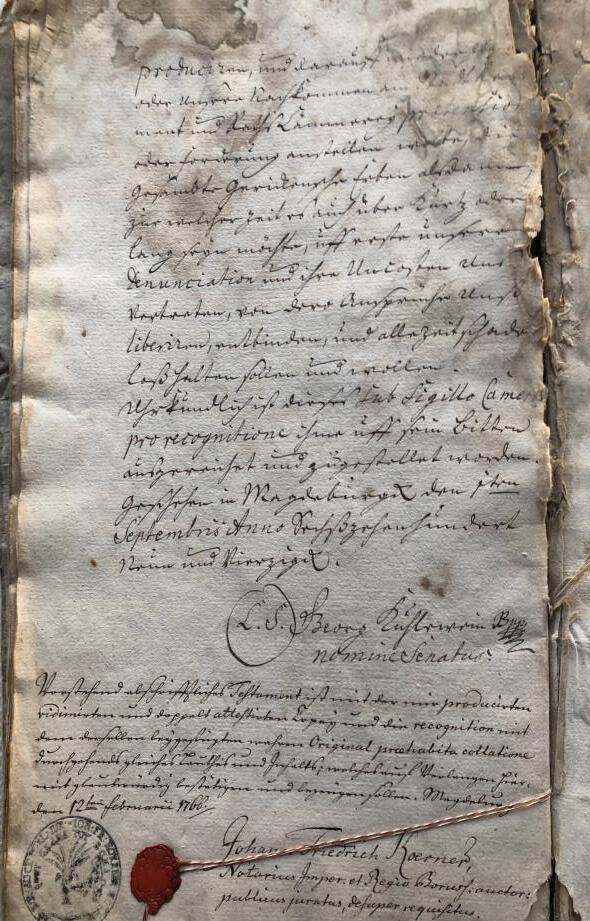 produciren, und darauff
oder Unsere Nachkommen am
ment und Raths Cämmerey
oder forderung anstellen
gesambte Gerickensche Erben alsdann,
zur welcher Zeit es auch über Kurtz oder
lang seyn möchte, uff erste unsere
Denunciation und ihre Uncosten Uns
Vertreten, von dero Ansprüche Unß
liberiren, entbinden, und allezeit schade
loß halten sollen und wollen.
Uhrkundlich ist dieses sub Sigillo Camer
pro recognitione ihme uff sein Bitten
ausgereichet und zugestellet worden.
Geschehen in Magdeburgk den 1ten
Septembris Anno Sechßzehenhundert
Neun und Vierzigk.
(L. S.) Georg Kühlewein
nomine Senatus.
Vorstehend abschrifftliches Testament ist mit der mir producirten
vidimirten und doppelt attestirten Copey und die recognition mit
dem derselben beygefügten wahren Original praehabita collatione
durchgehends gleiches Lauthes und Inhalts, welches auf Verlangen hier-
mit glaubwürdig bestätigen und bezeugen sollen. Magdeburg
den 12ten Februarii 1766.
Johann Friedrich Koerner,
Notarius Imper. et Regio Boruss. auctor:
publicus juratus, desuper requisitus.